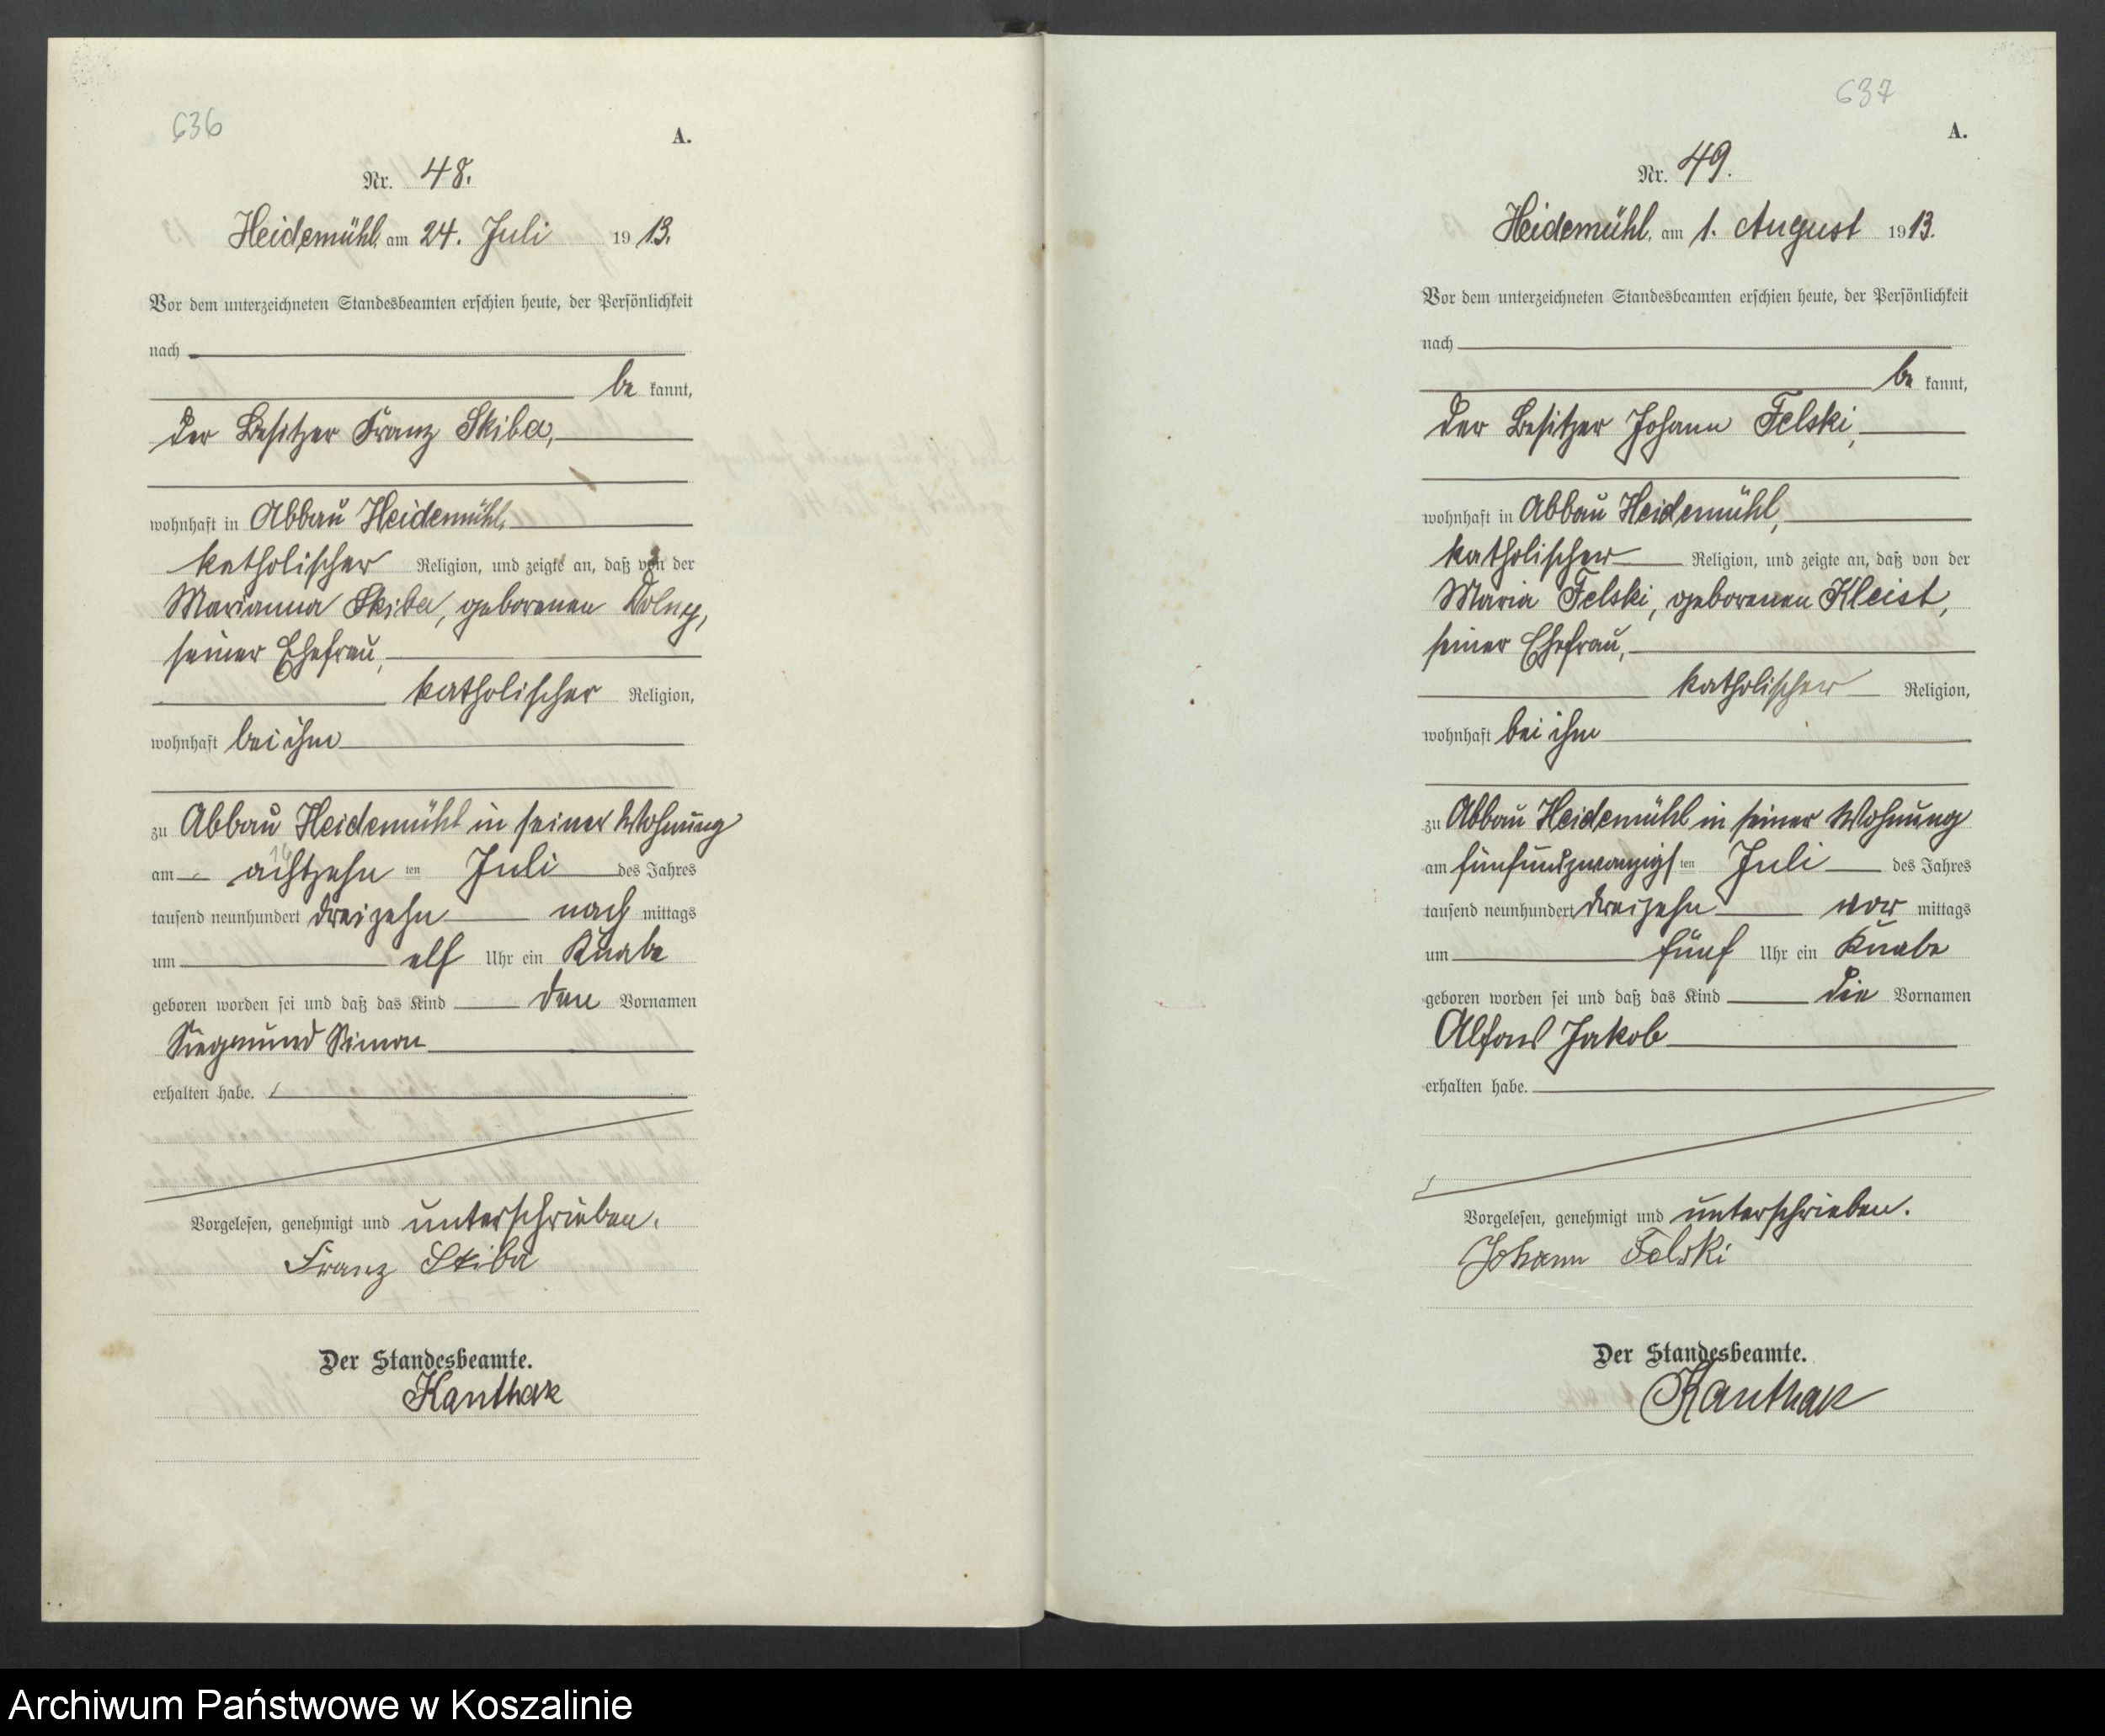 636
A.
Nr. 48.
Heidemühl, am 24. Juli 1913.
Vor dem unterzeichneten Standesbeamten erschien heute, der Persönlichkeit
nach
be kannt,
der Besitzer Franz Skiba,
wohnhaft in Abbau Heidemühl,
katholischer Religion, und zeigte an, daß von der
Marianna Skiba, geborenen Dolny,
seiner Ehefrau,
katholischer Religion,
wohnhaft bei ihm
zu Abbau Heidemühl in seiner Wohnung
am achtzehn ten Juli des Jahres
tausend neunhundert dreizehn nach mittags
um elf Uhr ein Knabe
geboren worden sei und daß das Kind den Vornamen
Siegmund Simon
erhalten habe.
Vorgelesen, genehmigt und unterschrieben.
Franz Skiba
Der Standesbeamte.
Kanthak
637
A.
Nr. 49.
Heidemühl, am 1. August 1913.
Vor dem unterzeichneten Standesbeamten erschien heute, der Persönlichkeit
nach
be kannt,
der Besitzer Johann Felski,
wohnhaft in Abbau Heidemühl,
katholischer Religion, und zeigte an, daß von der
Maria Felski, geborenen Kleist,
seiner Ehefrau,
katholischer Religion,
wohnhaft bei ihm
zu Abbau Heidemühl in seiner Wohnung
am fünfundzwanzigs ten Juli des Jahres
tausend neunhundert dreizehn vor mittags
um fünf Uhr ein Knabe
geboren worden sei und daß das Kind die Vornamen
Alfons Jakob
erhalten habe.
Vorgelesen, genehmigt und unterschrieben.
Johann Felski
Der Standesbeamte.
Kanthak
Archiwum Państwowe w Koszalinie